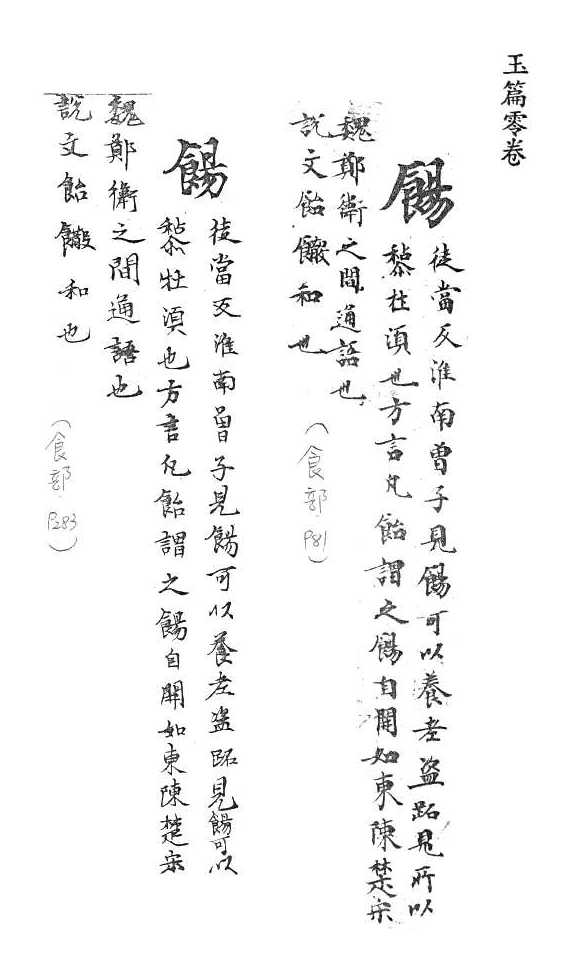 玉篇零卷
餳
徒當反淮南曾子見餳可以養老盜跖見所以
黏牡湏也方言凡飴謂之餳自開如東陳楚宋
魏鄭衛之間通語也
說文飴饊和也
（食部 P81）
餳
徒當反淮南曾子見餳可以養老盜跖見餳可以
黏牡湏也方言凡飴謂之餳自開如東陳楚宋
魏鄭衛之間通語也
說文飴饊和也
（食部 P283）